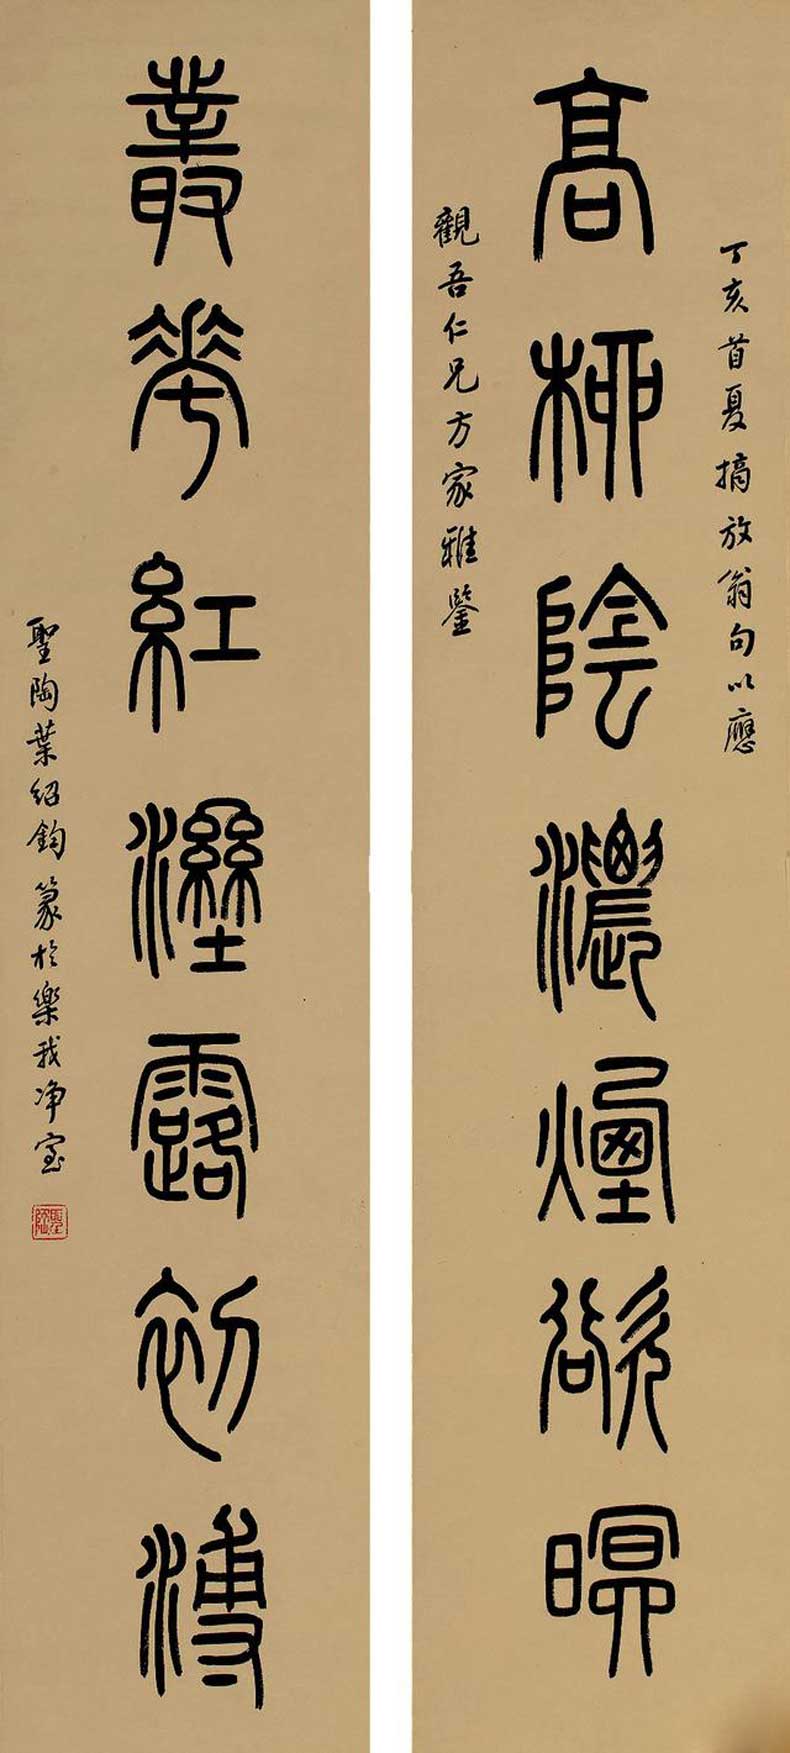 丁亥首夏摘放翁句以應
高柳陰濃煙欲暝
觀吾仁兄方家雅鑒
叢花紅溼露初漙
聖陶葉紹鈞篆於樂我淨室
聖陶